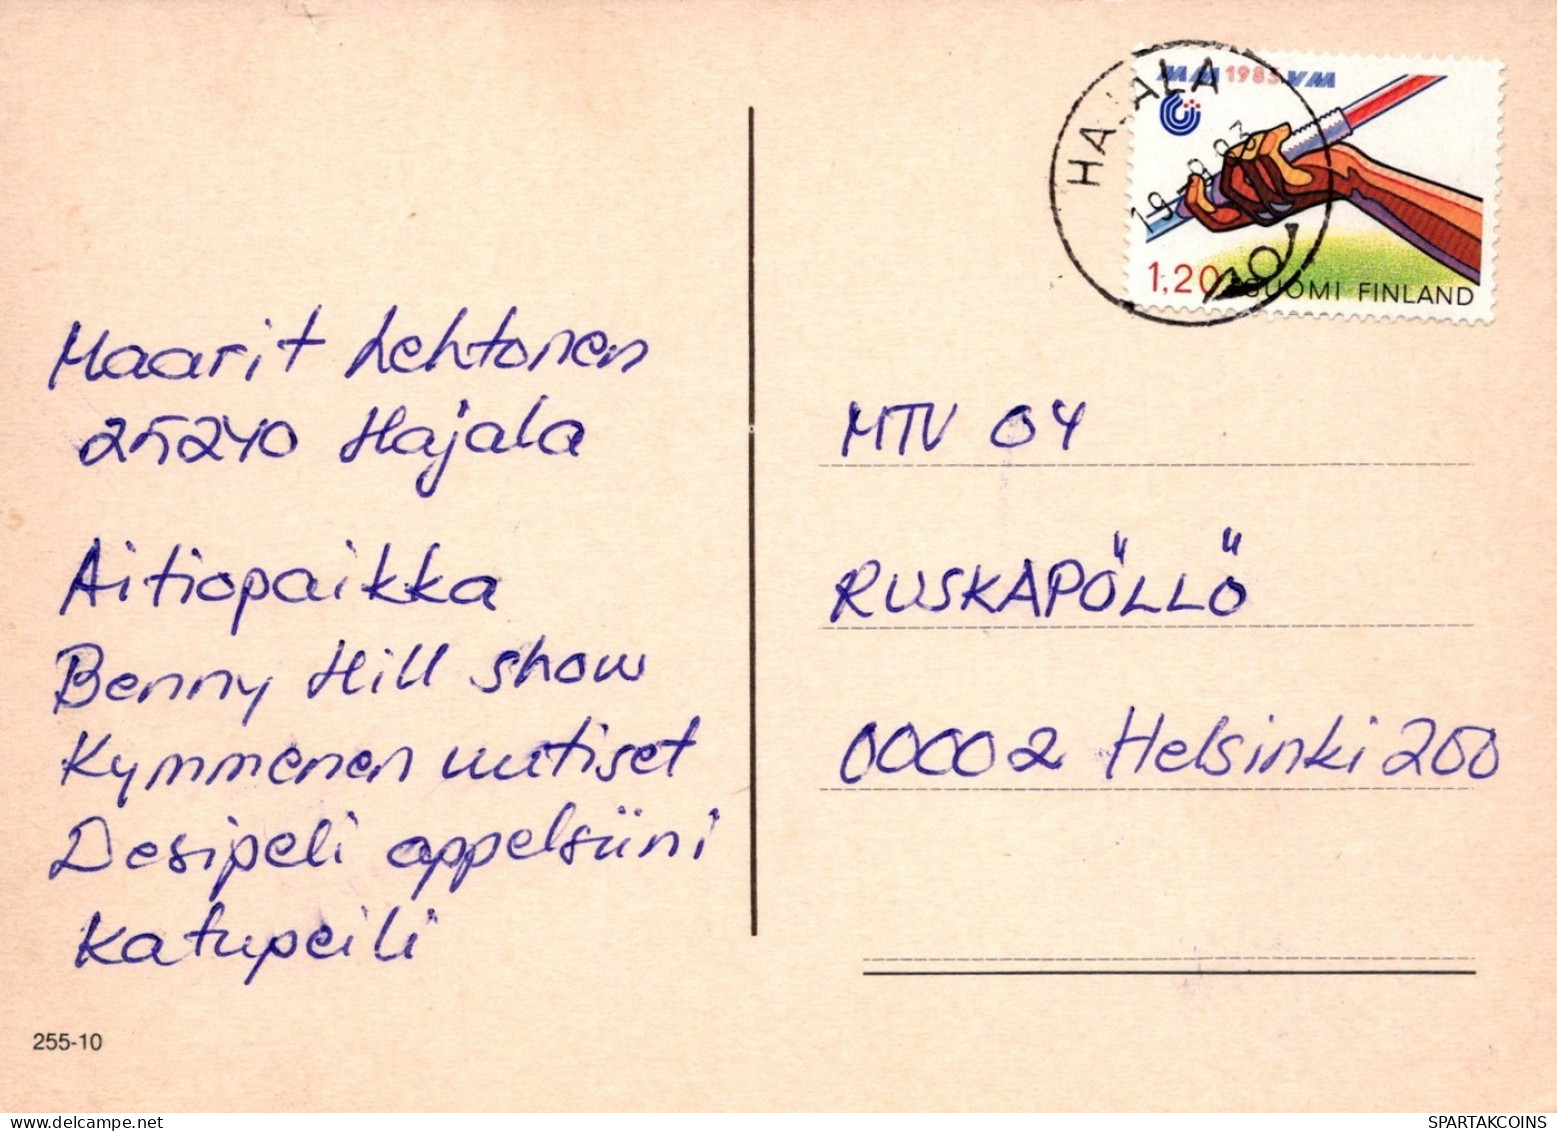 Maarit Lehtonen
25240 Hajala
Aitiopaikka
Benny Hill show
Kymmenen uutiset
Desipeli appelsiini
Katupeili
255-10
MM 1983 VM
HAJALA
19-9.83
1,20
SUOMI FINLAND
MTV 04
RUSKAPÖLLÖ
00002 Helsinki 200
SPARTAKCOINS